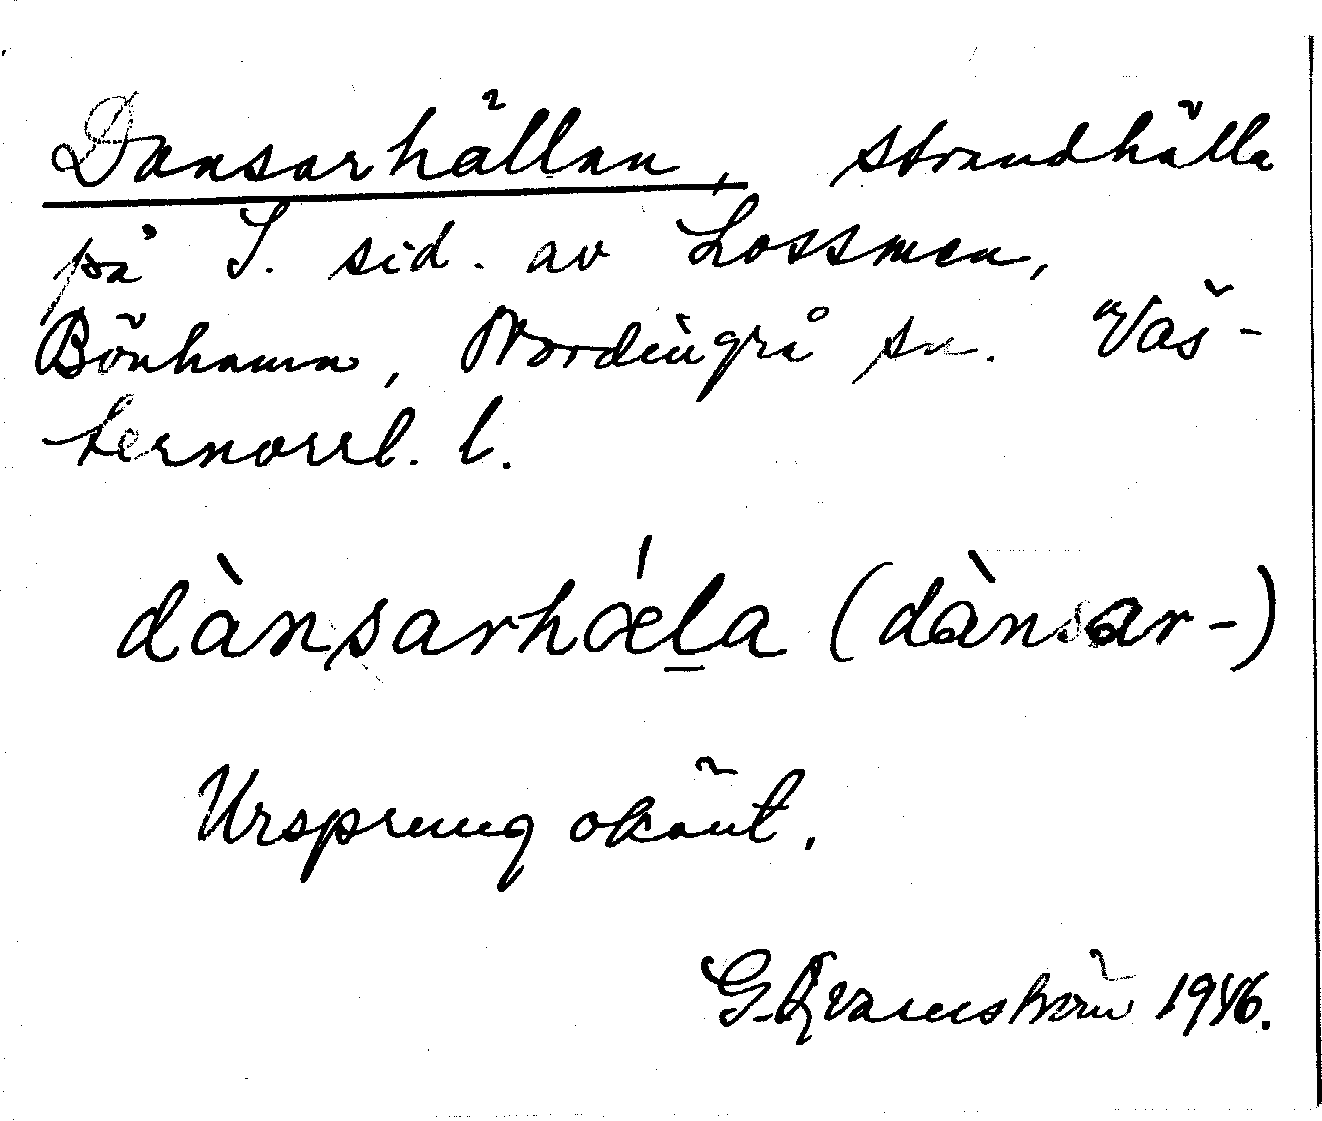 Dansarhällan, strandhälla
på S. sid. av Lossmen,
Bönhamn, Nordingrå sn. Väs-
ternorrl. l.
dànsarhǽla (dànsar-)
Ursprung okänt.
G. Qvarnström 1946.